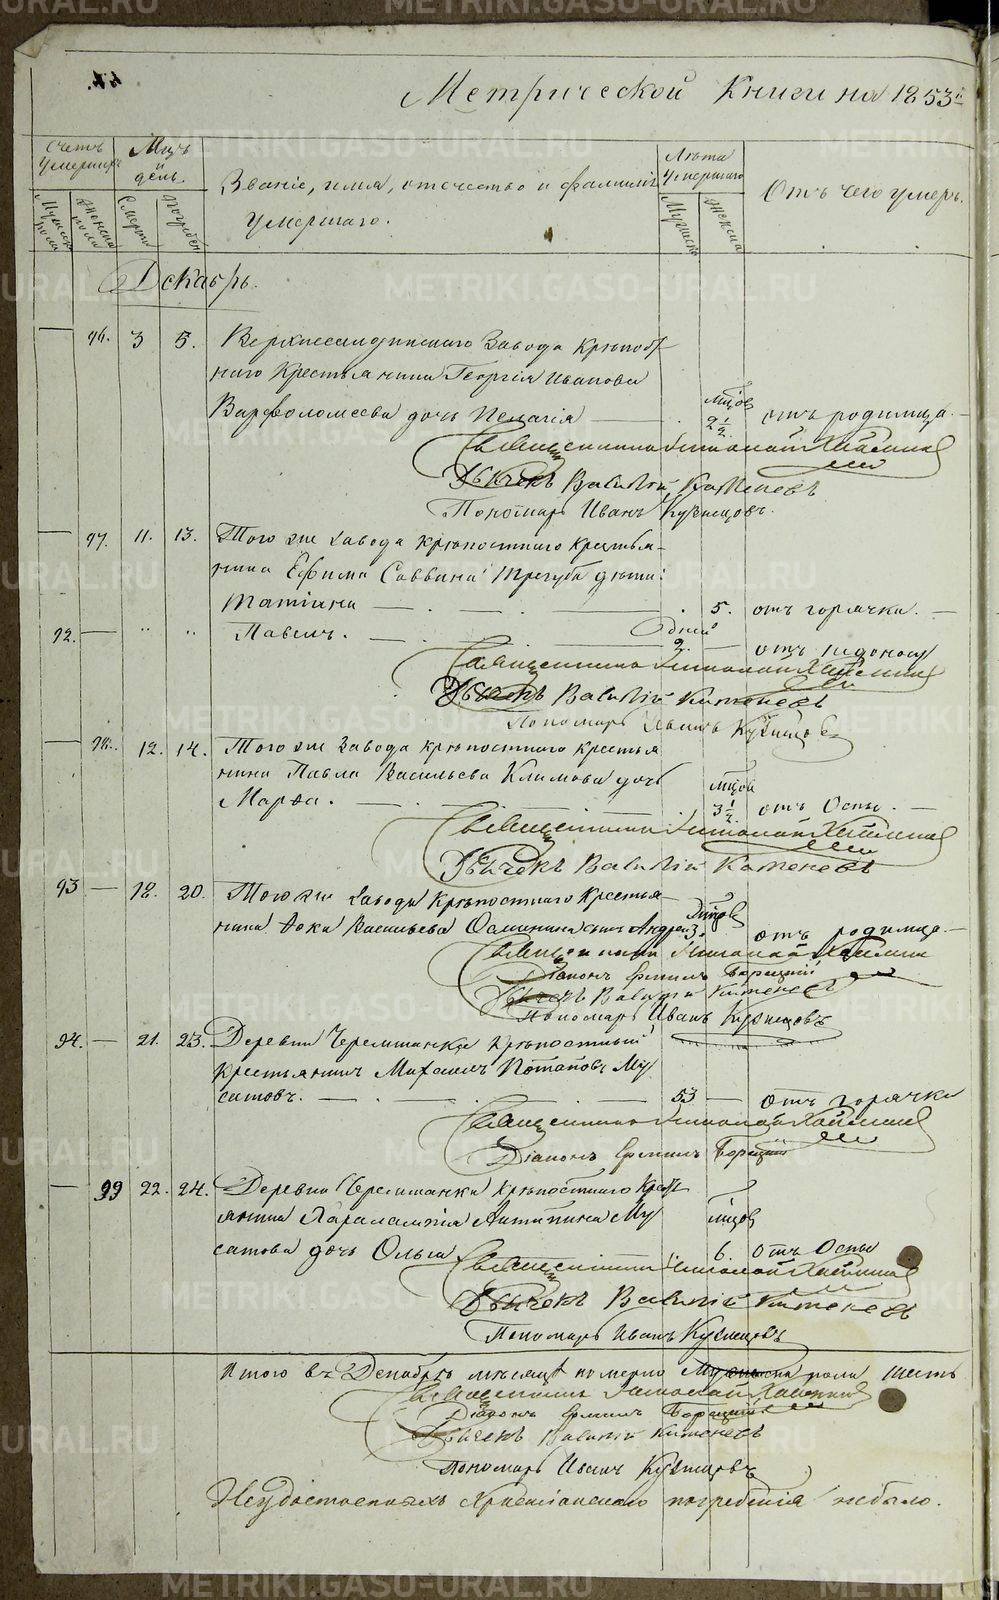 Метрической Книги на 1853й
Счетъ умершихъ
Мцъ и день
Звание, имя, отчество и фамилия умершаго.
Лѣта умершаго
Отъ чего умеръ.
Мужеска пола
Женска пола
Смерти
Погребен
Мужеска
Женска
Декабрь.
— 96. 3 5. Верхнесалдинскаго Завода Крѣпост
наго Крестьянина Георгія Иванова
Варфоломеева дочь Пелагія — мцов 2 1/2 отъ родимца. —
Священникъ Хлынов
Дьячекъ Валерій Каменевъ
Пономарь Иванъ Кузнецовъ.
— 97. 11. 13. Того же завода крѣпостнаго крестья-
нина Ефима Саввина Трегуба дѣти:
Татіана — 5. отъ горячки. —
92. — " " Павелъ. — дней 2. — отъ
Священникъ
Дьячекъ Валерій Каменевъ
Пономарь Иванъ Кузнецовъ
— 98. 12. 14. Того же Завода крѣпостнаго крестья
нина Павла Васильева Климова дочь
Марфа. — мцов 3 1/2. отъ Оспы. —
Священникъ
Дьячекъ Валерій Каменевъ
93 — 18. 20. Того же Завода Крѣпостнаго Крестья
нина Фоки Васильева Осминина сынъ Андрей мцов 3. отъ родимца. —
Священникъ
Діаконъ Ермилъ
Дьячекъ Валерій Каменевъ
Пономарь Иванъ Кузнецовъ
94. — 21. 23. Деревни Черемшанки крѣпостный
крестьянинъ Михаилъ Потаповъ Му
сатовъ. — 53 — отъ горячки
Священникъ
Діаконъ Ермилъ
— 99 22. 24. Деревни Черемшанки Крѣпостнаго Крест
янина Харалампія Антипина Му
сатова дочь Ольга мцов 6. отъ Оспы
Священникъ
Дьячекъ Валерій Каменевъ
Пономарь Иванъ Кузнецовъ
Итого въ Декабрѣ мѣсяцѣ померло Мужеска пола шесть
Священникъ
Діаконъ Ермилъ
Дьячекъ Валерій Каменевъ
Пономарь Иванъ Кузнецовъ
Неудостоенныхъ Християнскаго погребенія небыло.
METRIKI.GASO-URAL.RU